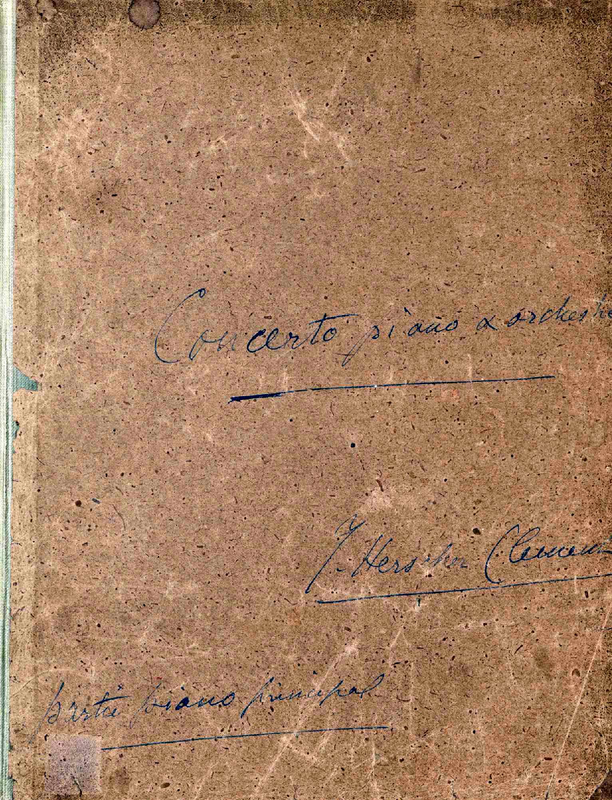 Concerto piano & orchestre
J. Herscher Clément
partie piano principal